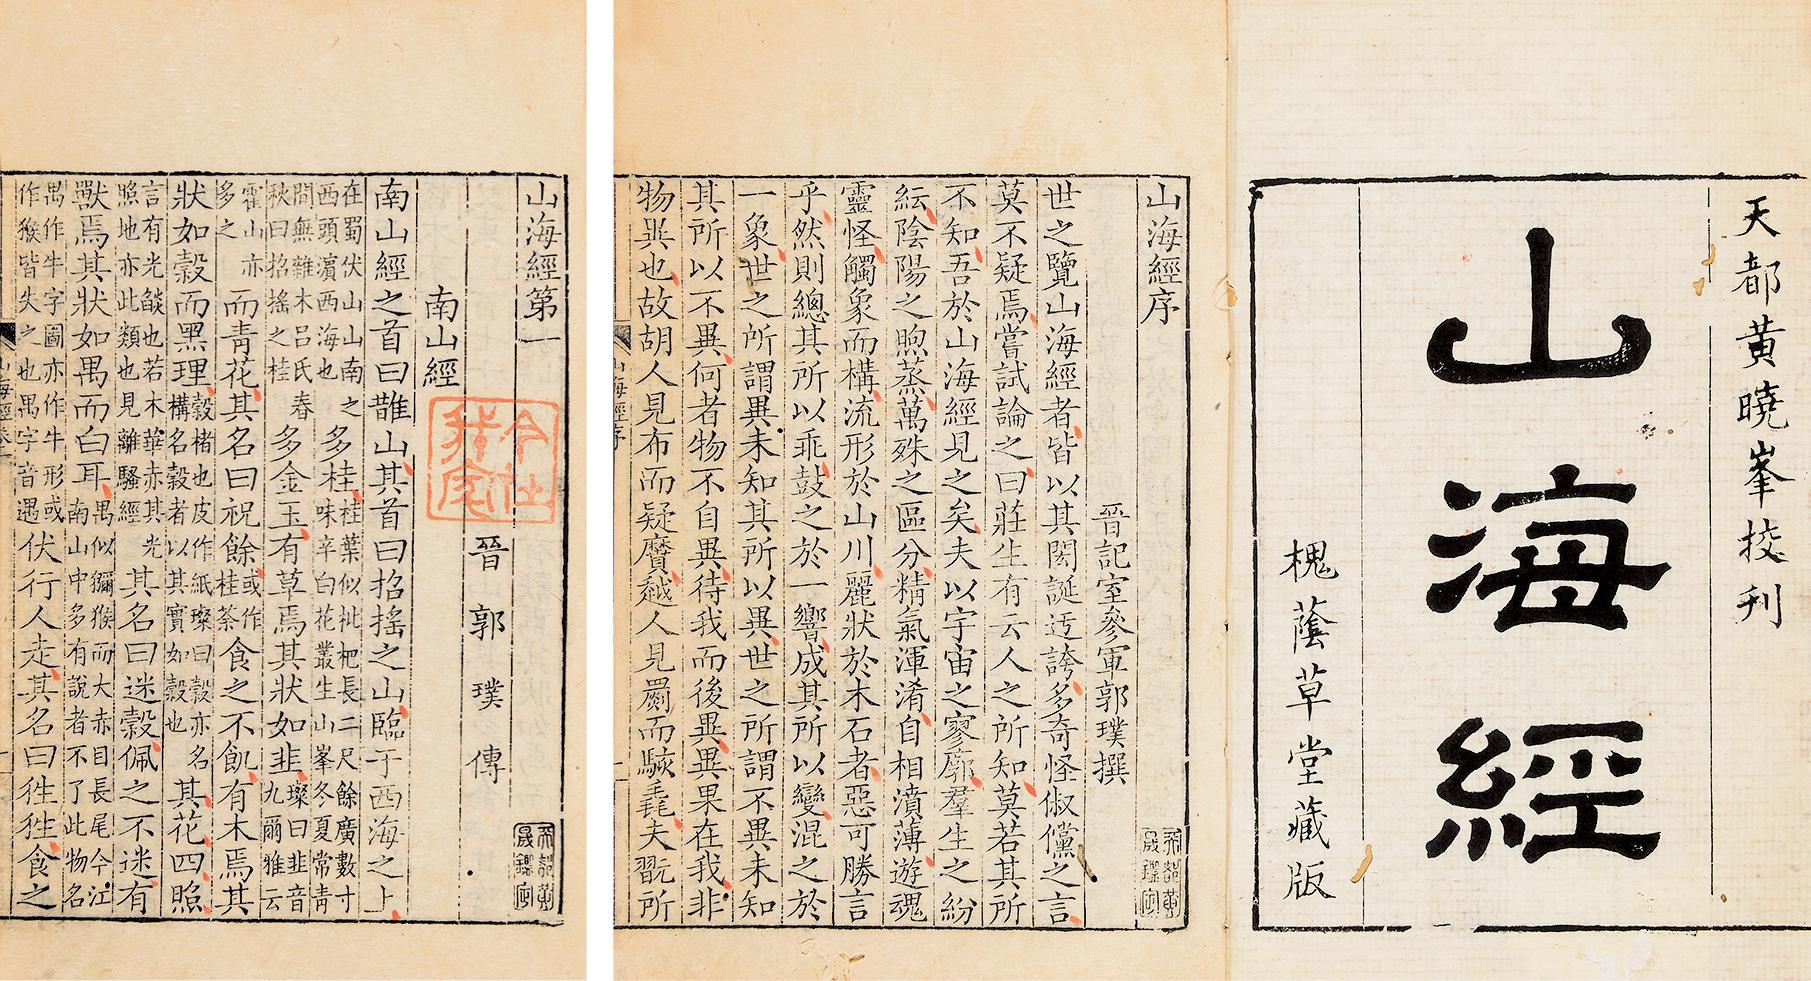 天都黃曉峯挍刊
山海經
槐蔭草堂藏版
山海經序
晉記室參軍郭璞撰
世之覽山海經者皆以其閎誕迃誇多奇怪俶儻之言
莫不疑焉嘗試論之曰莊生有云人之所知莫若其所
不知吾於山海經見之矣夫以宇宙之寥廓羣生之紛
紜陰陽之煦蒸萬殊之區分精氣渾淆自相濆薄遊魂
靈怪觸象而構流形於山川麗狀於木石者惡可勝言
乎然則總其所以乖鼓之於一響成其所以變混之於
一象世之所謂異未知其所以異世之所謂不異未知
其所以不異何者物不自異待我而後異異果在我非
物異也故胡人見布而疑黂越人見罽而駭毳夫翫所
山海經第一
南山經
晉郭璞傳
南山經之首曰䧿山其首曰招搖之山臨于西海之上
在蜀伏山山南之西頭濱西海也多桂桂葉似枇杷長二尺餘廣數寸味辛白花叢生山峯冬夏常靑
間無雜木呂氏春秋曰招搖之桂多金玉有草焉其狀如韭璨曰韭音九爾雅云
霍山亦多之而靑花其名曰祝餘或作桂荼食之不飢有木焉其
狀如榖而黑理榖楮也皮作紙璨曰榖亦名構名榖者以其實如榖也其花四照
言有光燄也若木華赤其光照地亦此類也見離騷經其名曰迷榖佩之不迷有
獸焉其狀如禺而白耳禺似獼猴而大赤目長尾今江南山中多有說者不了此物名
禺作牛字圖亦作牛形或作猴皆失之也禺字音遇伏行人走其名曰狌狌食之